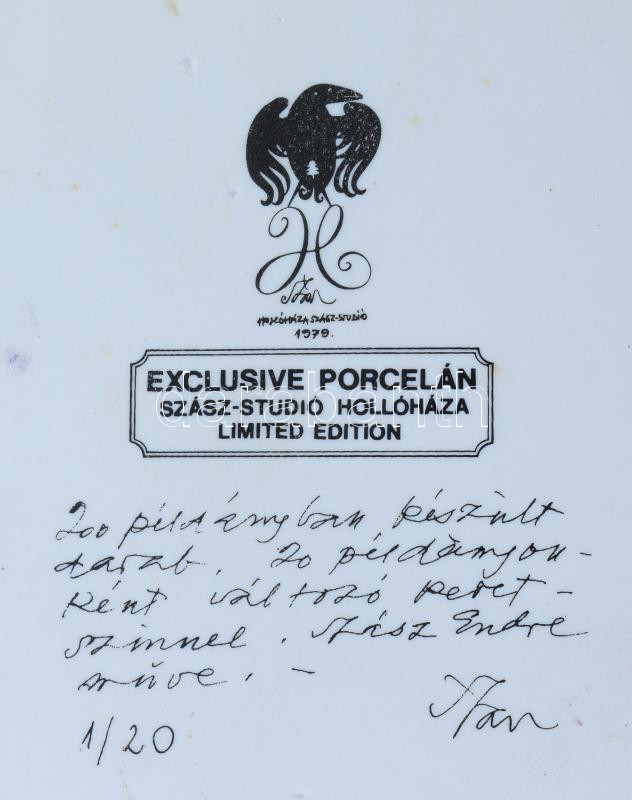 H
Szász
HOLLÓHÁZA SZÁSZ-STUDIÓ
1979.
EXCLUSIVE PORCELÁN
SZÁSZ-STUDIÓ HOLLÓHÁZA
LIMITED EDITION
darabanth
200 példányban készült
darab. 20 példányon-
ként változó keret-
szinnel. Szász Endre
műve. -
Szász
1/20